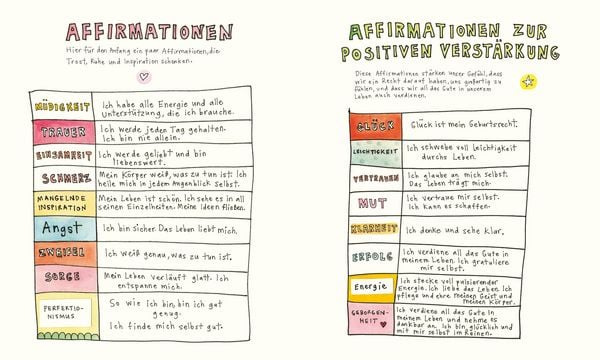 AFFIRMATIONEN
Hier für den Anfang ein paar Affirmationen, die
Trost, Ruhe und Inspiration schenken.
MÜDIGKEIT
Ich habe alle Energie und alle
Unterstützung, die ich brauche.
TRAUER
Ich werde jeden Tag gehalten.
Ich bin nie allein.
EINSAMKEIT
Ich werde geliebt und bin
liebenswert.
SCHMERZ
Mein Körper weiß, was zu tun ist. Ich
heile mich in jedem Augenblick selbst.
MANGELNDE
INSPIRATION
Mein Leben ist schön. Ich sehe es in all
seinen Einzelheiten. Meine Ideen fließen.
Angst
Ich bin sicher. Das Leben liebt mich.
ZWEIFEL
Ich weiß genau, was zu tun ist.
SORGE
Mein Leben verläuft glatt. Ich
entspanne mich.
PERFEKTIO-
NISMUS
So wie ich bin, bin ich gut
genug.
Ich finde mich selbst gut.
AFFIRMATIONEN ZUR
POSITIVEN VERSTÄRKUNG
Diese Affirmationen stärken unser Gefühl, dass
wir ein Recht darauf haben, uns großartig zu
fühlen, und dass wir all das Gute in unserem
Leben auch verdienen.
GLÜCK
Glück ist mein Geburtsrecht.
LEICHTIGKEIT
Ich schwebe voll Leichtigkeit
durchs Leben.
VERTRAUEN
Ich glaube an mich selbst.
Das Leben trägt mich.
MUT
Ich vertraue mir selbst.
Ich kann es schaffen.
KLARHEIT
Ich denke und sehe klar.
ERFOLG
Ich verdiene all das Gute in
meinem Leben. Ich gratuliere
mir selbst.
Energie
Ich stecke voll pulsierender
Energie. Ich liebe das Leben. Ich
pflege und ehre meinen Geist und
meinen Körper.
GEBORGEN-
HEIT
Ich verdiene all das Gute in
meinem Leben und nehme es
dankbar an. Ich bin glücklich und
mit mir selbst im Reinen.